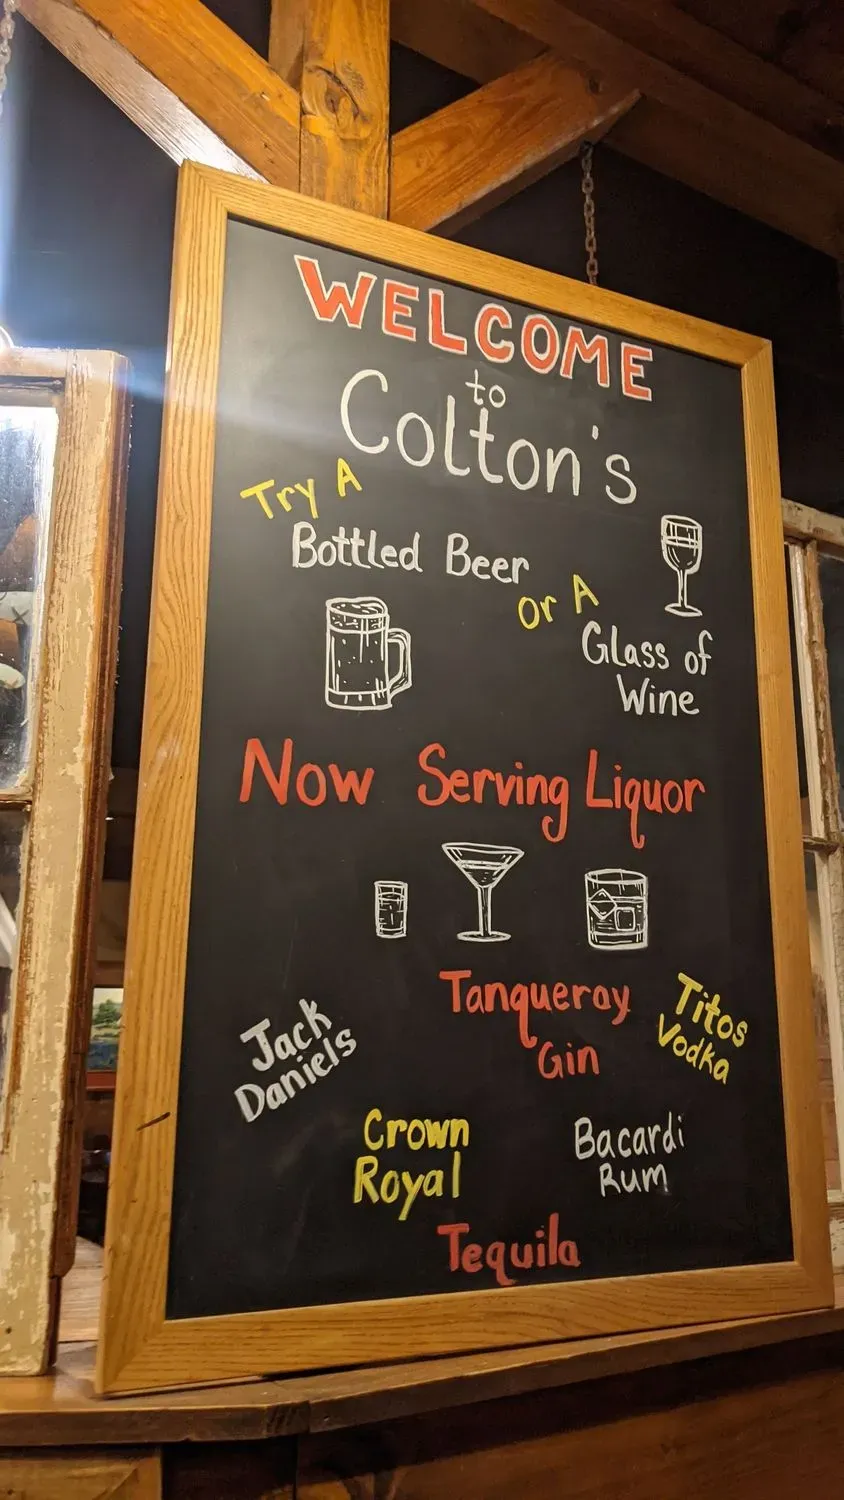 WELCOME
to
Colton's
Try A
Bottled Beer
or A
Glass of
Wine
Now Serving Liquor
Tanqueray
Gin
Titos
Vodka
Jack
Daniels
Crown
Royal
Bacardi
Rum
Tequila